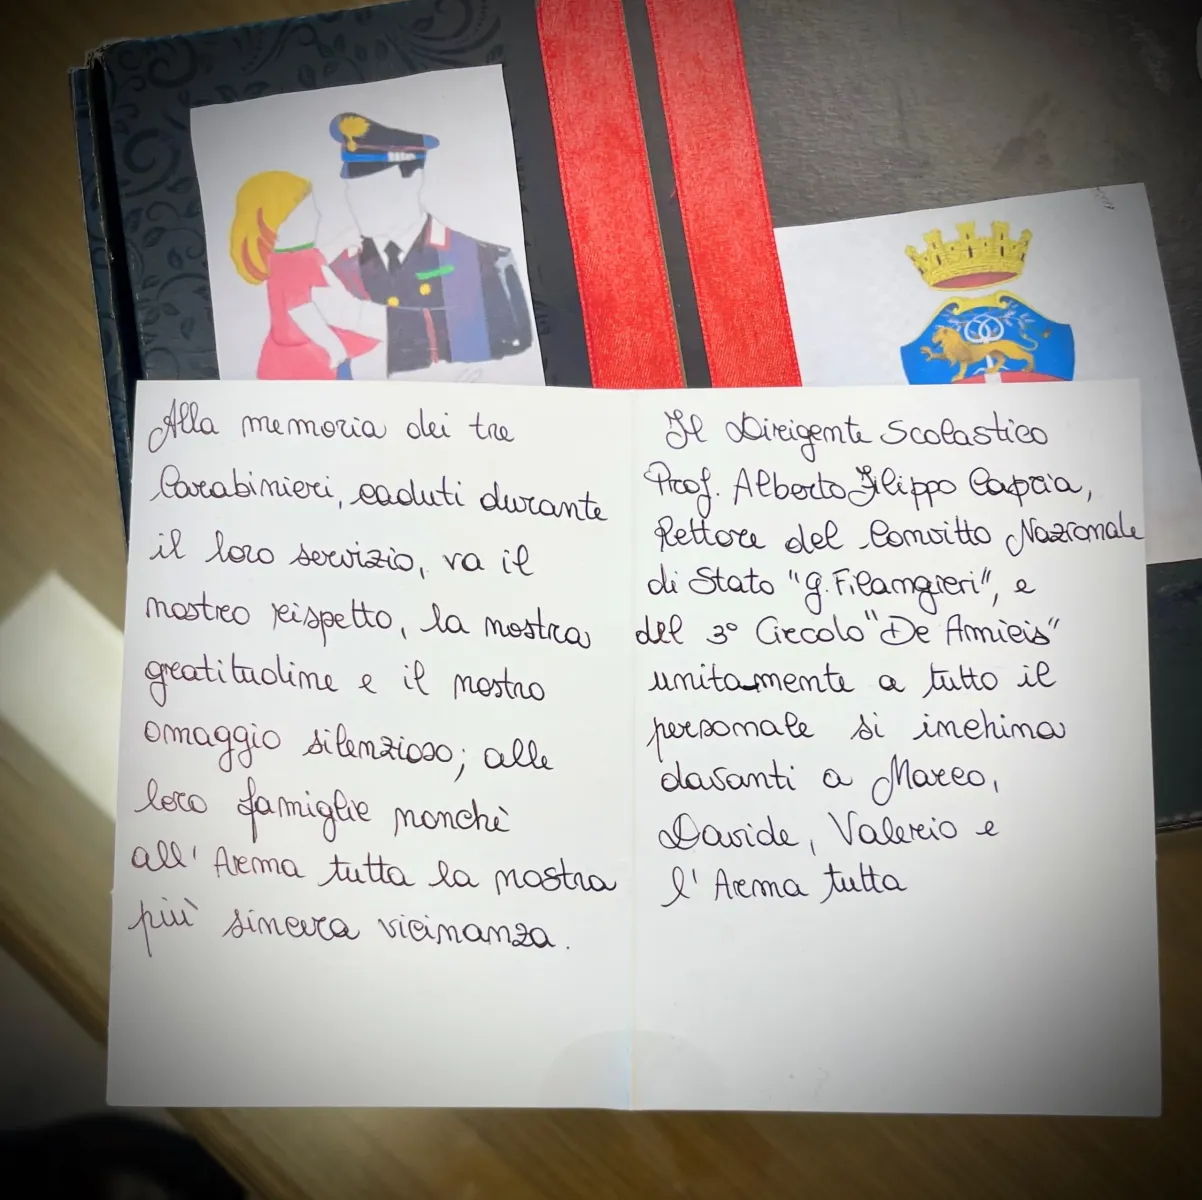 Alla memoria dei tre
Carabinieri, caduti durante
il loro servizio, va il
nostro rispetto, la nostra
gratitudine e il nostro
omaggio silenzioso; alle
loro famiglie nonchè
all'Arma tutta la nostra
più sincera vicinanza.
Il Dirigente Scolastico
Prof. Alberto Filippo Capria,
Rettore del Convitto Nazionale
di Stato "G. Filangieri", e
del 3° Circolo "De Amicis"
unitamente a tutto il
personale si inchina
davanti a Marco,
Davide, Valerio e
l'Arma tutta